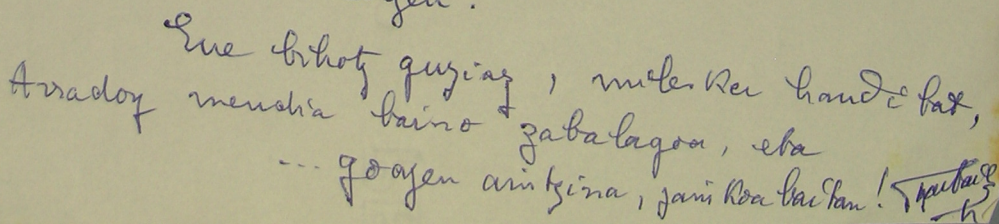 Ene bihotz guziaz, milesker handi bat,
Arradoy mendia baino zabalagoa, eta
... goazen aintzina, jainkoa baitan!